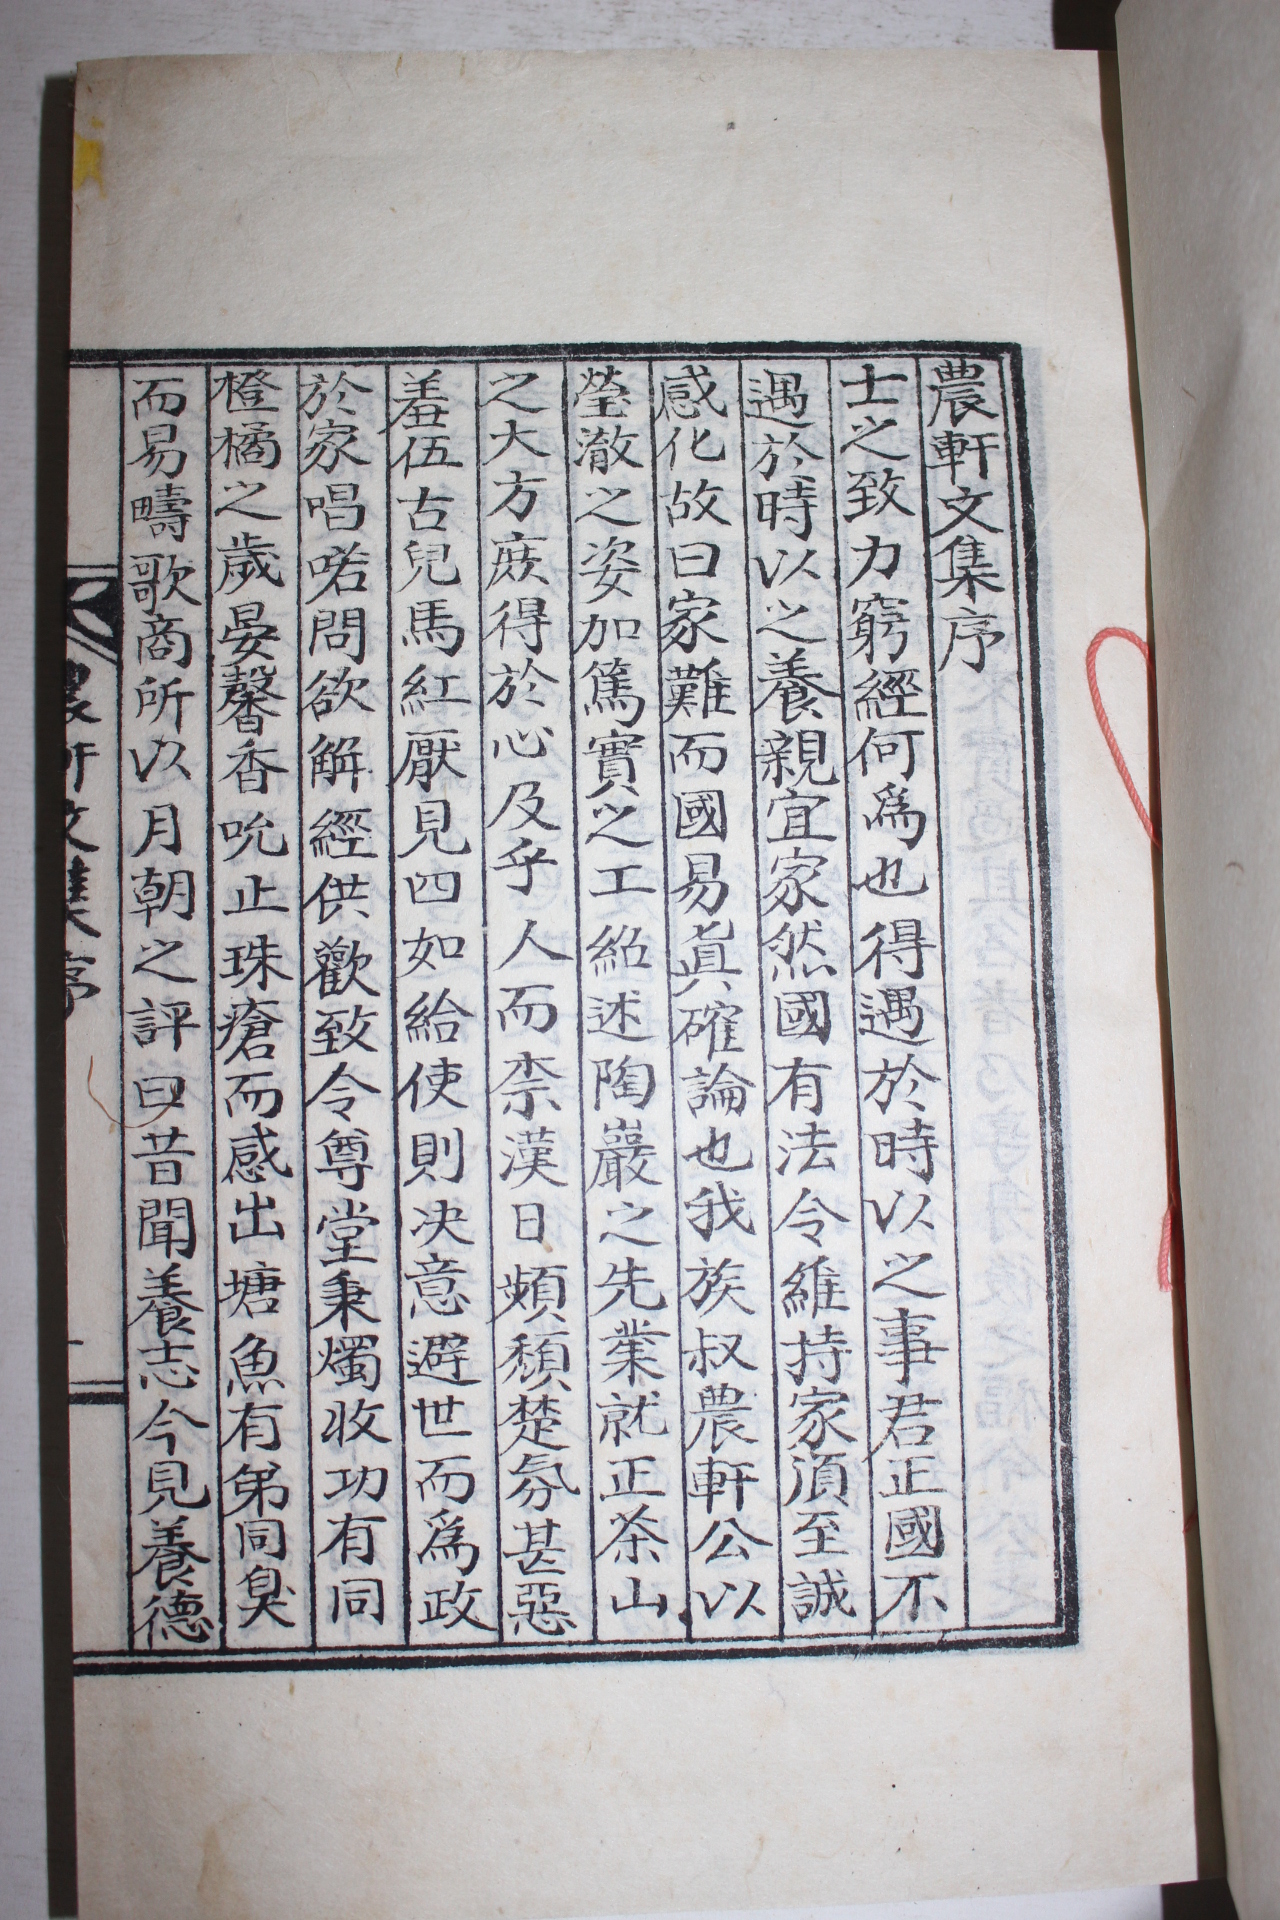 農軒文集序
士之致力窮經何爲也得遇於時以之事君正國不
遇於時以之養親宜家然國有法令維持家湏至誠
感化故曰家難而國易眞確論也我族叔農軒公以
瑩澈之姿加篤實之工紹述陶巖之先業就正茶山
之大方庶得於心及乎人而柰漢日頻頹楚氛甚惡
羞伍古兒馬紅厭見四如給使則决意避世而爲政
於家唱喏問欲解經供歡致令尊堂秉燭收功有同
橙橘之歲晏馨香吮止珠瘡而感出塘魚有弟同臭
而易疇歌商所以月朝之評曰昔聞養志今見養德
農軒文集序
一